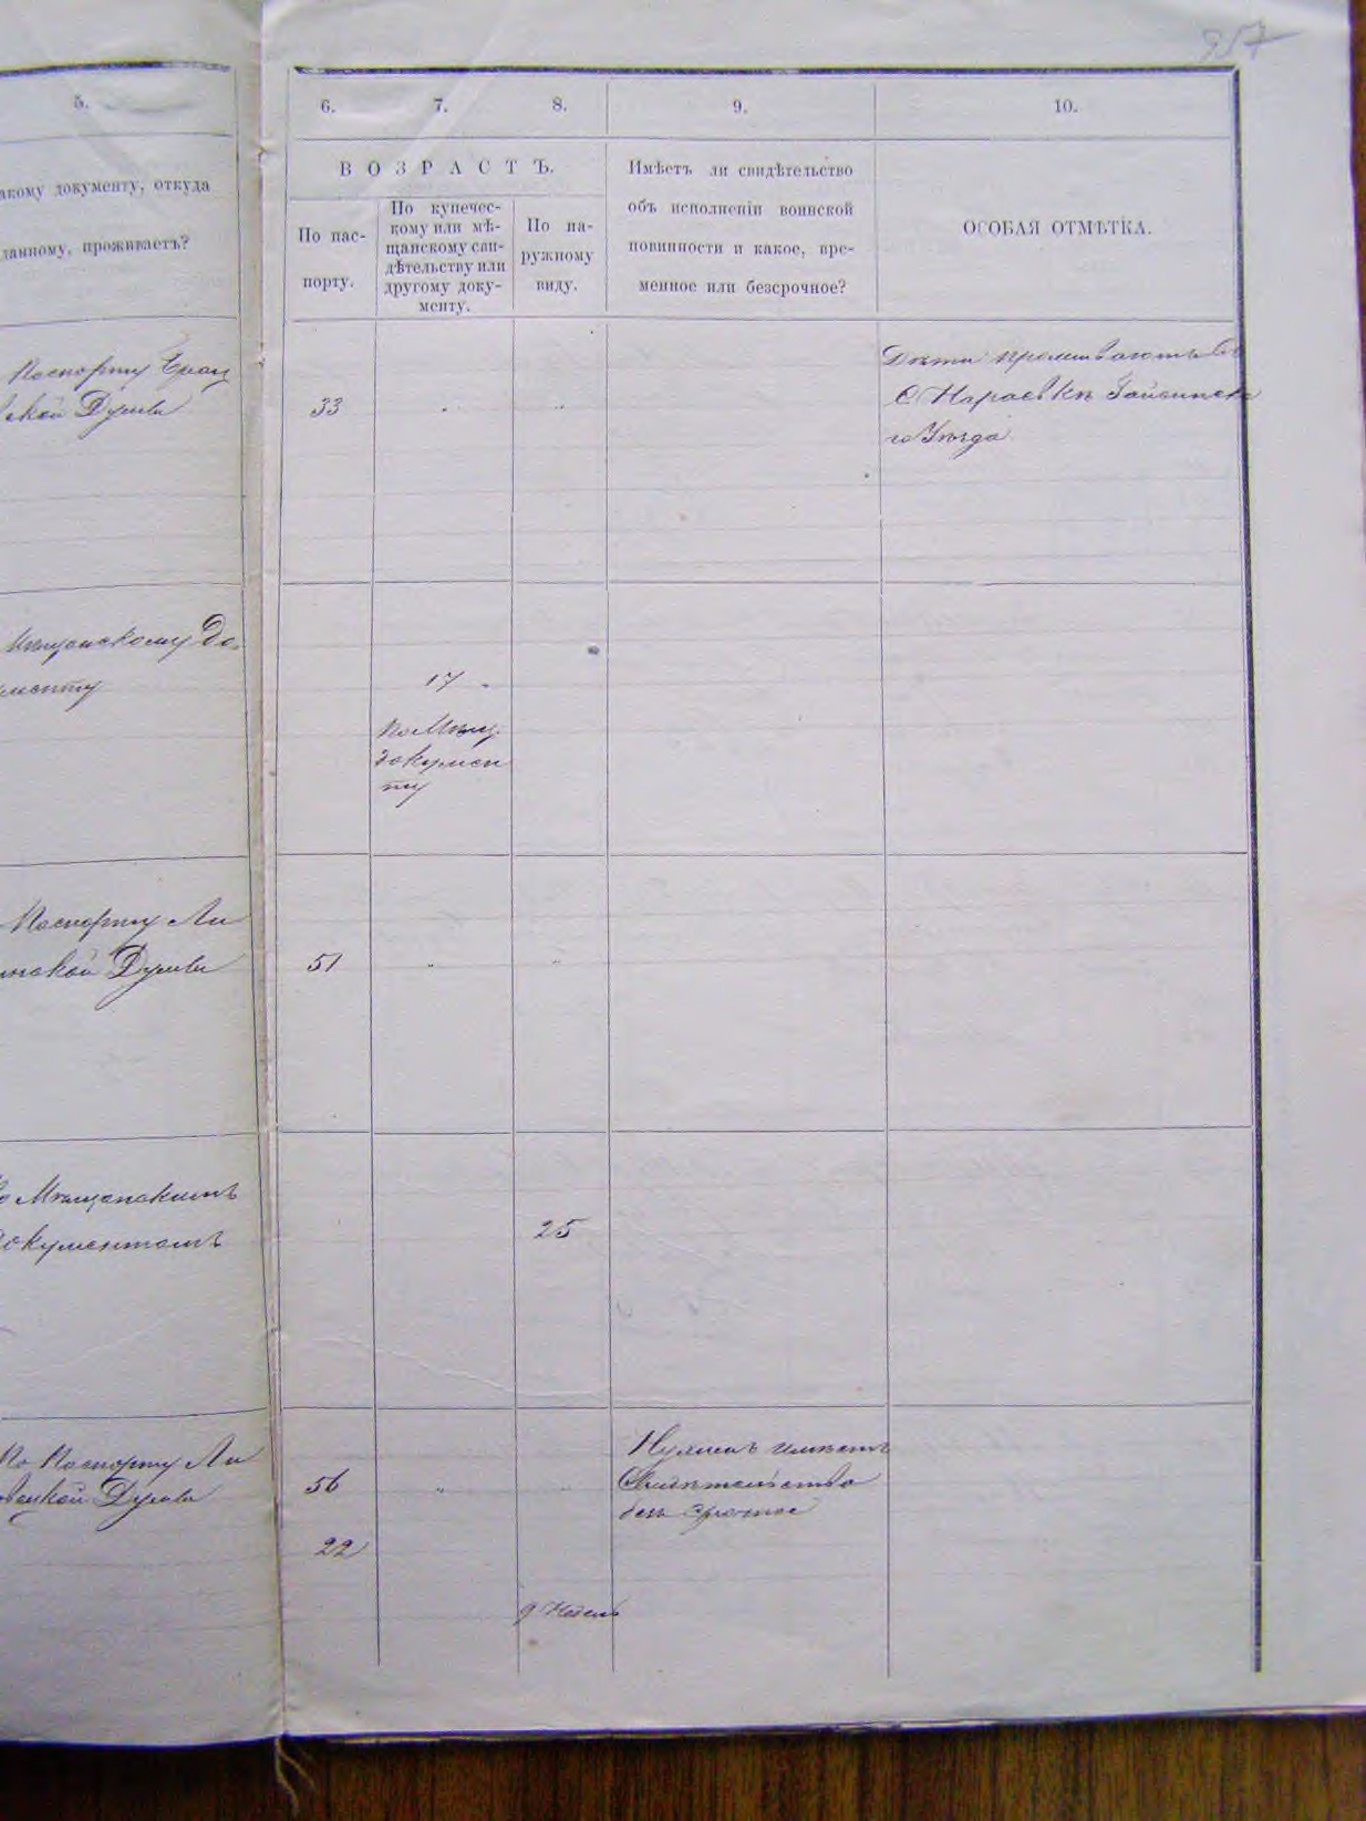 957
5.
6.
7.
8.
9.
10.
акому документу, откуда
данному, проживаетъ?
ВОЗРАСТЪ.
По пас-
порту.
По купечес-
кому или мѣ-
щанскому сви-
дѣтельству или
другому доку-
менту.
По на-
ружному
виду.
Имѣетъ ли свидѣтельство
объ исполненіи воинской
повинности и какое, вре-
менное или безсрочное?
ОСОБАЯ ОТМѢТКА.
Паспорту
ской Думы
33
Дѣти проживаютъ въ
С Нараевкѣ Гайсинска
го Уѣзда
Мѣщанскому До
менту
17
по Мѣщ.
докумен
ту
Паспорту Ли
Думы
51
Мѣщанскимъ
окументомъ
25
По Паспорту Ли
Думы
56
22
9 Недель
имѣетъ
Свидѣтельство
безъ срочное